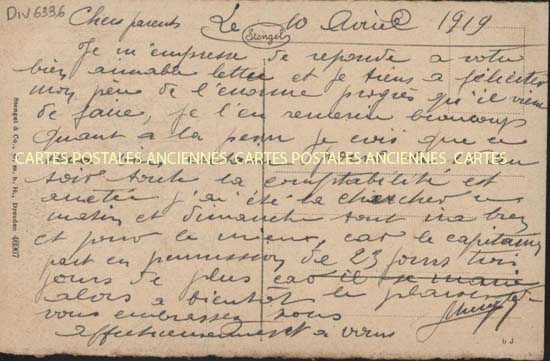 Div 6336
Chers parents Le 10 Avril 1919
Stengel
Je m'empresse de reponde a votre
bien aimable lettre et je tiens a féliciter
mon père de l'enorme progrès qu'il vient
de faire, je l'en remercie beaucoup
quant à la perm je crois que ce
CARTES POSTALES ANCIENNES CARTES POSTALES ANCIENNES CARTES POSTALES ANCIENNES
soir toute la comptabilité est
arretée j'ai été la chercher ce
matin et dimanche tout ira bien
et pour le mieux, car le capitaine
part en permission de 23 jours trois
jours de plus car il se marie
alors a bientôt le plaisir de
vous embrasser tous
affectueusement a vous
Stengel & Co., G. m. b. H., Dresden 46067
b J.